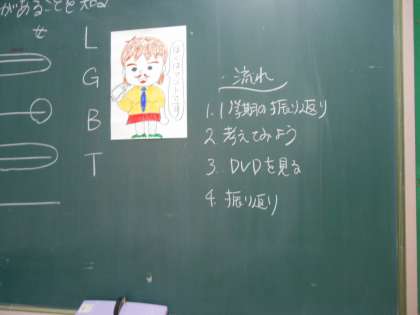 があることを知る
女
L
G
B
T
流れ
1. 1学期の振り返り
2 考えてみよう
3. DVDを見る
4. 振り返り